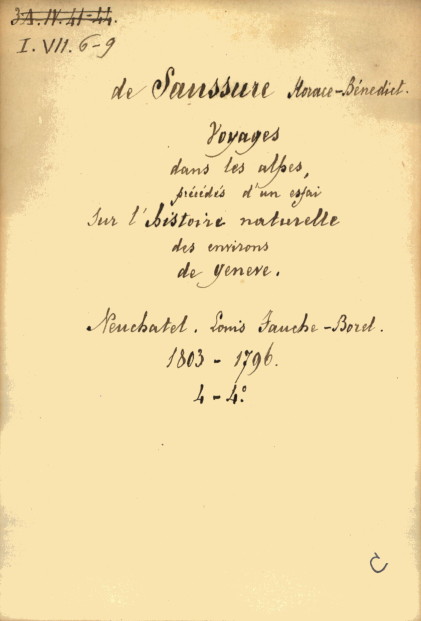 3A.IV.41-44.
I. VII. 6-9
de Saussure Horace-Bénedict.
Voyages
dans les alpes,
précédés d'un essai
sur l'histoire naturelle
des environs
de geneve.
Neuchatel. Louis Fauche-Borel.
1803-1796.
4-4°
C